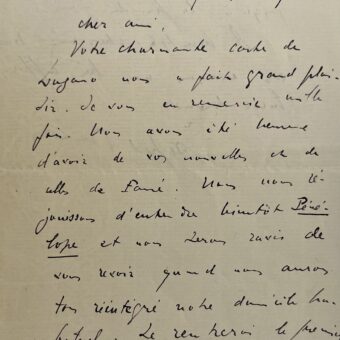 cher ami,
Votre charmante carte de
Lugano nous a fait grand plai-
sir. Je vous en remercie mille
fois. Nous avons été heureux
d'avoir de vos nouvelles et de
celles de Fauré. Nous nous ré-
jouissons d'entendre bientôt Péné-
lope et nous serons ravis de
vous revoir quand nous aurons
tous réintégré notre domicile ha-
bituel. Je rentrerai le premier